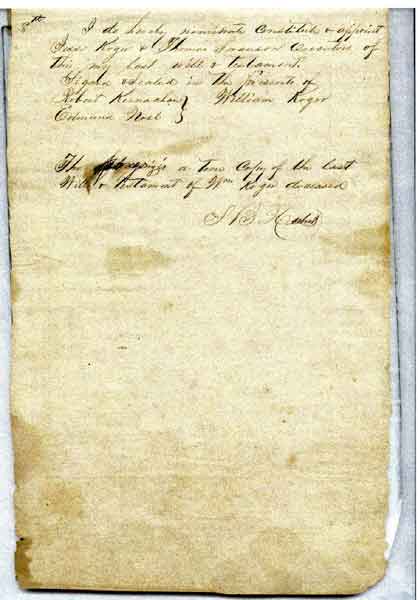 8th I do hereby nominate Constitute & appoint
Jess Koger & Thomas Swanson Executors of
this my last will & testament
Signed & sealed in the presents of
Robert Kernachan } William Koger
Edmund Noel
The is a true Copy of the last
Will & testament of Wm Koger deceased
S B